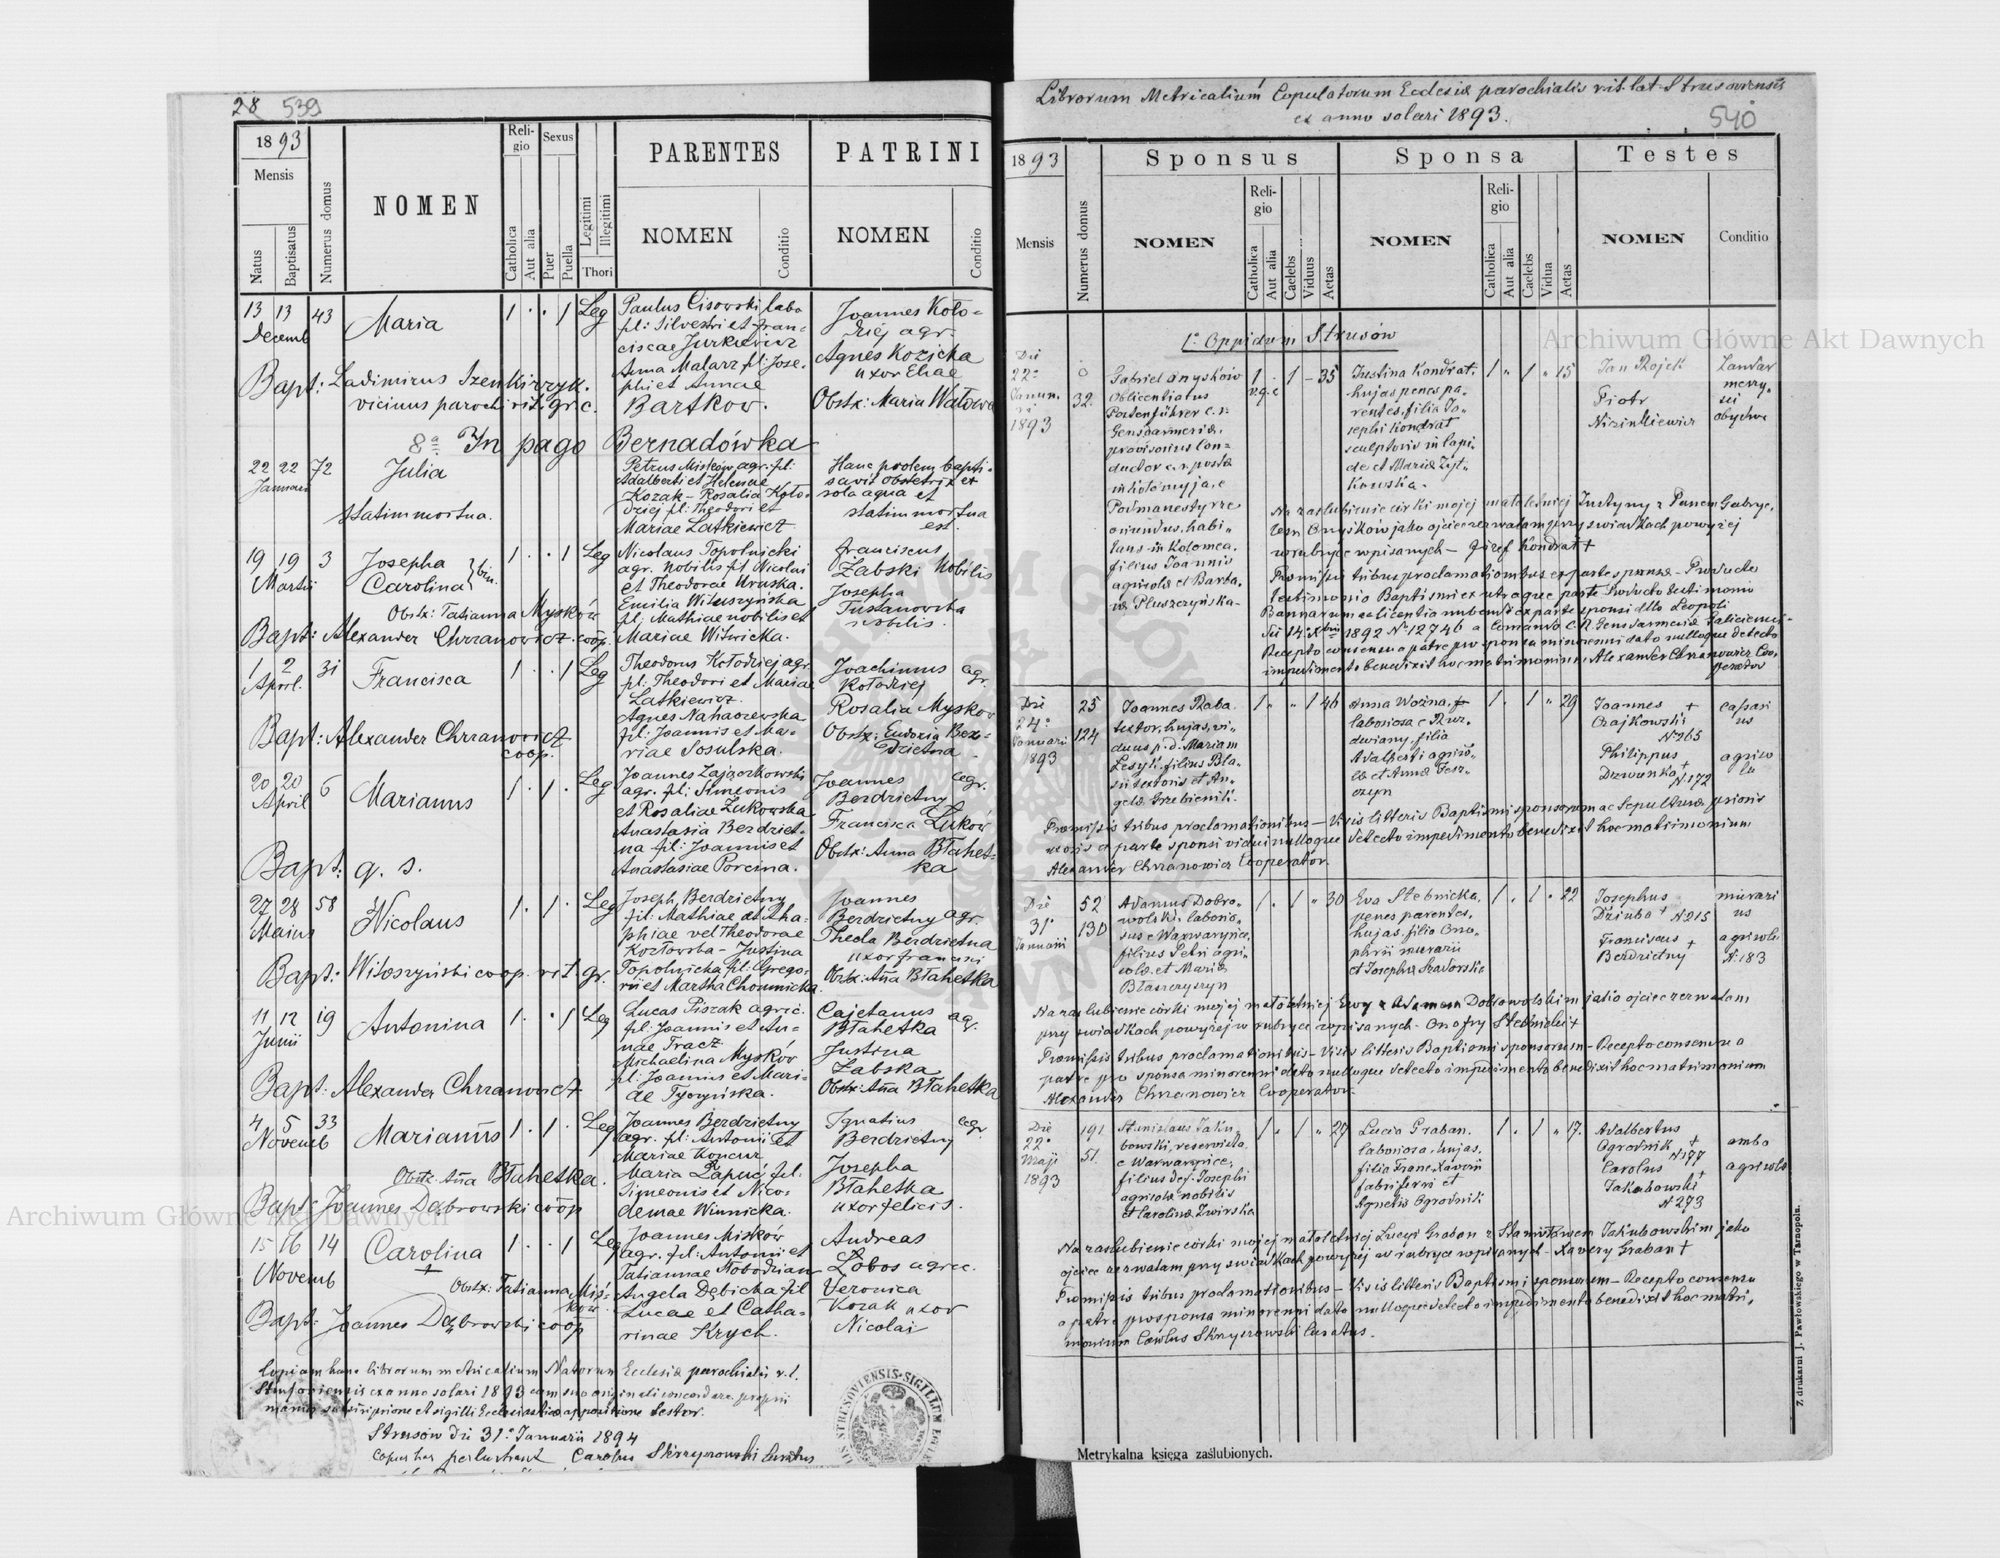 28 539
1893
Mensis
Natus
Baptisatus
Numerus domus
NOMEN
Reli-
gio
Catholica
Aut alia
Sexus
Puer
Puella
Legitimi
Illegitimi
Thori
PARENTES
NOMEN
Conditio
PATRINI
NOMEN
Conditio
13 13 43 Maria 1 . . 1 Leg
Decemb
Paulus Cisowski labo
fil: Silvestri et Fran-
ciscae Jurkiewicz
Anna Malarz fil: Jose-
phi et Annae
Bartkow.
Joannes Koło-
dziej agr.
Agnes Kozicka
uxor Eliae
Obstx: Maria Watowa
Bapt: Ladimirus
vicinus parochi rit. gr. c.
8a In pago Bernadówka
22 22 72 Julia
Januarii
statim mortua.
Petrus Misków agr. fil:
Adalberti et Helenae
Kozak - Rosalia Koło-
dziej fil: Theodori et
Mariae Latkiewicz
Hanc prolem bapti-
savit obstetrix ex
sola aqua et
statim mortua
est.
19 19 3 Josepha 1 . . 1 Leg
Martii Carolina } bin.
Nicolaus Topolnicki
agr. nobilis fil Nicolai
et Theodorae Uruska.
Emilia Witoszyńska
fil: Mathiae nobilis et
Mariae Witwicka.
Franciscus
Żabski Nobilis
Josepha
Tustanowska
nobilis.
Obstx: Tatianna Myskow
Bapt: Alexander Chrzanowicz coop.
1 2 31 Francisca 1 . . 1 Leg
April.
Theodorus Kołodziej agr.
fil: Theodori et Mariae
Latkiewicz
Agnes Naharzewska
fil: Joannis et Ma-
riae Sosulska.
Joachimus agr.
Kołodziej
Rosalia Myskow
Obstx: Eudoxia Ber-
dzietna
Bapt: Alexander Chrzanowicz
coop.
20 20 6 Marianus 1 . 1 . Leg
April
Joannes Zajączkowski
agr. fil: Simeonis
et Rosaliae Żukowska
Anastasia Berdziet-
na fil: Joannis et
Anastasiae Porcina.
Joannes agr.
Berdzietny
Francisca Łukow
Obstx: Anna Błahet-
ka
Bapt: q. s.
27 28 58 Nicolaus 1 . 1 . Leg
Maius
Joseph Berdzietny
fil: Mathiae et Aha-
phiae vel Theodorae
Kozłowska - Justina
Topolnicka fil: Grego-
rii et Martha Choumicka
Joannes
Berdzietny agr
Thecla Berdzietna
uxor Francisci
Obstx: Aña Błahetka
Bapt: Witoszyński coop. rit. gr.
11 12 19 Antonina 1 . . 1 Leg
Junii
Lucas Piszak agric.
fil: Joannis et An-
nae Tracz
Michaelina Myskóv
fil: Joannis et Mari-
ae Tyczyńska.
Cajetanus ag.
Błahetka
Justina
Żabska
Obstx: Aña Błahetka
Bapt: Alexander Chrzanowicz
4 5 33 Marianus 1 . 1 . Leg
Novemb
Joannes Berdzietny
agr. fil: Antonii et
Mariae Koncur
Maria Łapuć fil.
Simeonis et Nico-
demae Winnicka.
Ignatius agr.
Berdzietny
Josepha
Błahetka
uxor Felicis.
Obstx. Aña Błahetka.
Bapt: Joannes Dąbrowski coop
15 16 14 Carolina 1 . . 1 Leg
Novemb
Joannes Misków
agr. fil: Antonii et
Tatiannae Słobodzian
Angela Dębicka fil
Lucae et Catha-
rinae Krych.
Andreas
Łobos agric.
Veronica
Kozak uxor
Nicolai
Obstx: Tatianna Mis-
kow.
Bapt: Joannes Dąbrowski coop
Copiam hanc librorum metricalium Natorum Ecclesiæ parochialis r. l.
Strusoviensis ex anno solari 1893 cum suo originali concordare proprii
manus subscriptione et sigilli Ecclesiastici appositione testor.
Strusów die 31a Januarii 1894
Carolus Skrzyszowski Curatus
Librorum Metricalium Copulatorum Ecclesiæ parochialis rit. lat. Strusoviensis
ex anno solari 1893.
540
1893
Mensis
Numerus domus
Sponsus
NOMEN
Reli-
gio
Catholica
Aut alia
Caelebs
Viduus
Aetas
Sponsa
NOMEN
Reli-
gio
Catholica
Aut alia
Caelebs
Vidua
Aetas
Testes
NOMEN
Conditio
1o Oppidum Strusów
Die
22a
Januari
1893
0
32
Gabriel Onysków
Oblicentiatus
Postenführer c. r.
Gensdarmeriæ,
provisorius con-
ductor c. r. postæ
in Kołomyja, e
Podmanestyrze
oriundus, habi-
tans in Kolomea,
filius Joannis
agricolæ et Barba-
ræ Pluszczyńska-
1 . 1 - 35
r. g. c
Justina Kondrat,
hujas penes pa-
rentes, filia Jo-
sephi Kondrat
sculptoris in lapi-
de et Mariæ Żyt-
kowska.
1 " 1 " 15
Jan Rojek
Piotr
Nizinkiewicz
Żandar
meryi
obydwa
Na zaślubienie córki mojej małoletniej Justyny z Panem Gabrye-
lem Onysków jako ojciec zezwalam przy świadkach powyżej
w rubryce wpisanych - Józef Kondrat +
Præmissis tribus proclamationibus ex parte sponsæ - Producto
testimonio Baptismi ex utraque parte Producto testimonio
Bannorum ac licentia nubendi ex parte sponsi ddto Leopoli
die 14. Xbris 1892 No 12746 a Comando C. R. Gensdarmeriæ Galiciensi-
Recepto consensu a patre pro sponsa minorenni dato nulloque detecto
impedimento benedixit hoc matrimonium Alexander Chrzanowicz Coo-
perator
Die
24a
Januarii
1893
25
124
Joannes Raba
textor, hujas, vi-
duus p. d. Mariam
Lesyk, filius Bla-
sii textoris et An-
gelæ Grzebienik.
1 " " 1 46
Anna Woźna,
laboriosa e Ruz-
dwiany, filia
Adalberti agrico-
læ et Annæ Jesz-
czyn
1 . 1 " 29
Joannes +
Czajkowski
No 265
Philippus +
Drewnko No 172
cassari
us
agrico
la
Præmissis tribus proclamationibus - Visis litteris Baptismi sponsorum ac Sepulturæ prioris
uxoris ex parte sponsi vidui nulloque detecto impedimento benedixit hoc matrimonium
Alexander Chrzanowicz Cooperator.
Die
31a
Januarii
52
130
Adamus Dobro-
wolski, laborio-
sus e Warwaryńce,
filius Petri agri-
colæ et Mariæ
Błaszczyszyn
1 . 1 " 30
Eva Stebnicka,
penes parentes,
hujas, filia Ono-
phrii murarii
et Josephæ Szadorska
1 . 1 " 22
Josephus
Dziuba + No 215
Franciscus +
Berdzietny
murari
us
agricola
No 183
Na zaślubienie córki mojej małoletniej Ewy z Adamem Dobrowolskim jako ojciec zezwalam
przy świadkach powyżej w rubryce wpisanych - Onofry Stebnicki +
Præmissis tribus proclamationibus - Visis litteris Baptismi sponsorum - Recepto consensu a
patre pro sponsa minorenni dato nulloque detecto impedimento benedixit hoc matrimonium
Alexander Chrzanowicz Cooperator.
Die
22a
Maji
1893
191
51
Stanislaus Jaku-
bowski, reservista
e Warwaryńce,
filius def. Josephi
agricolæ nobilis
et Carolinæ Zwirska
1 . 1 " 27
Lucia Graban,
laboriosa, hujas,
filia Franc. Xaverii
fabri ferri et
Agnetis Ogrodnik
1 . 1 " 17.
Adalbertus +
Ogrodnik No 177
Carolus +
Jakubowski
No 273
ambo
agricolæ
Na zaślubienie córki mojej małoletniej Lucyi Graban z Stanisławem Jakubowskim jako
ojciec zezwalam przy świadkach powyżej w rubryce wpisanych - Xawery Graban +
Præmissis tribus proclamationibus - Visis litteris Baptismi sponsorum - Recepto consensu
a patre pro sponsa minorenni dato nulloque detecto impedimento benedixit hoc matri-
monium Carolus Skrzyszowski Curatus.
Metrykalna księga zaślubionych.
Z drukarni J. Pawłowskiego w Tarnopolu.
Archiwum Główne Akt Dawnych
Archiwum Główne Akt Dawnych